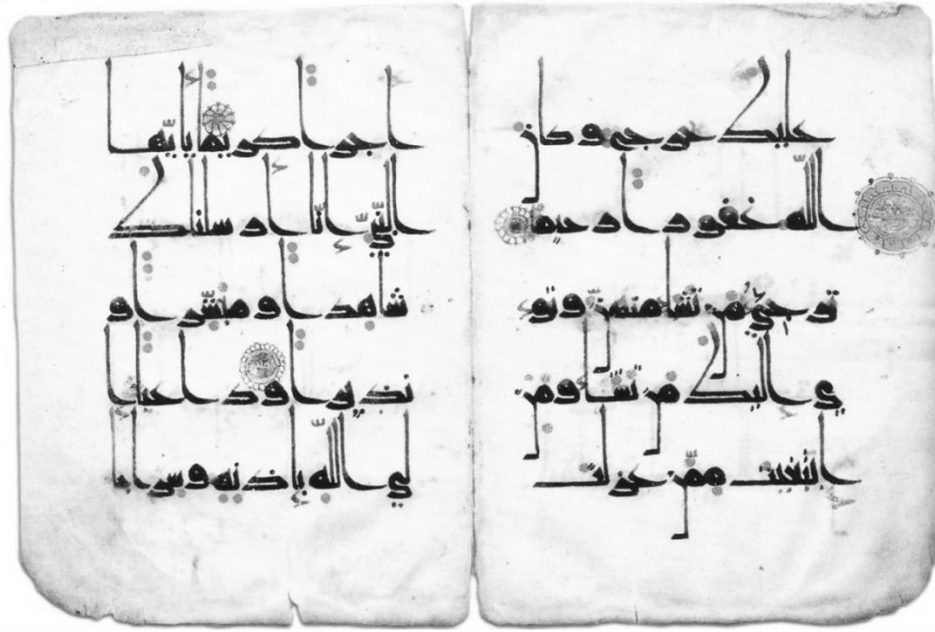 عليك حرج وكان
الله غفورا رحيما
ترجي من تشا منهن وتو
ي اليك من تشا ومن
ابتغيت ممن عزلت
اجرا كريما يايها
النبي انا ارسلنك
شاهدا ومبشرا و
نذيرا وداعيا ا
لي الله باذنه وسراجا